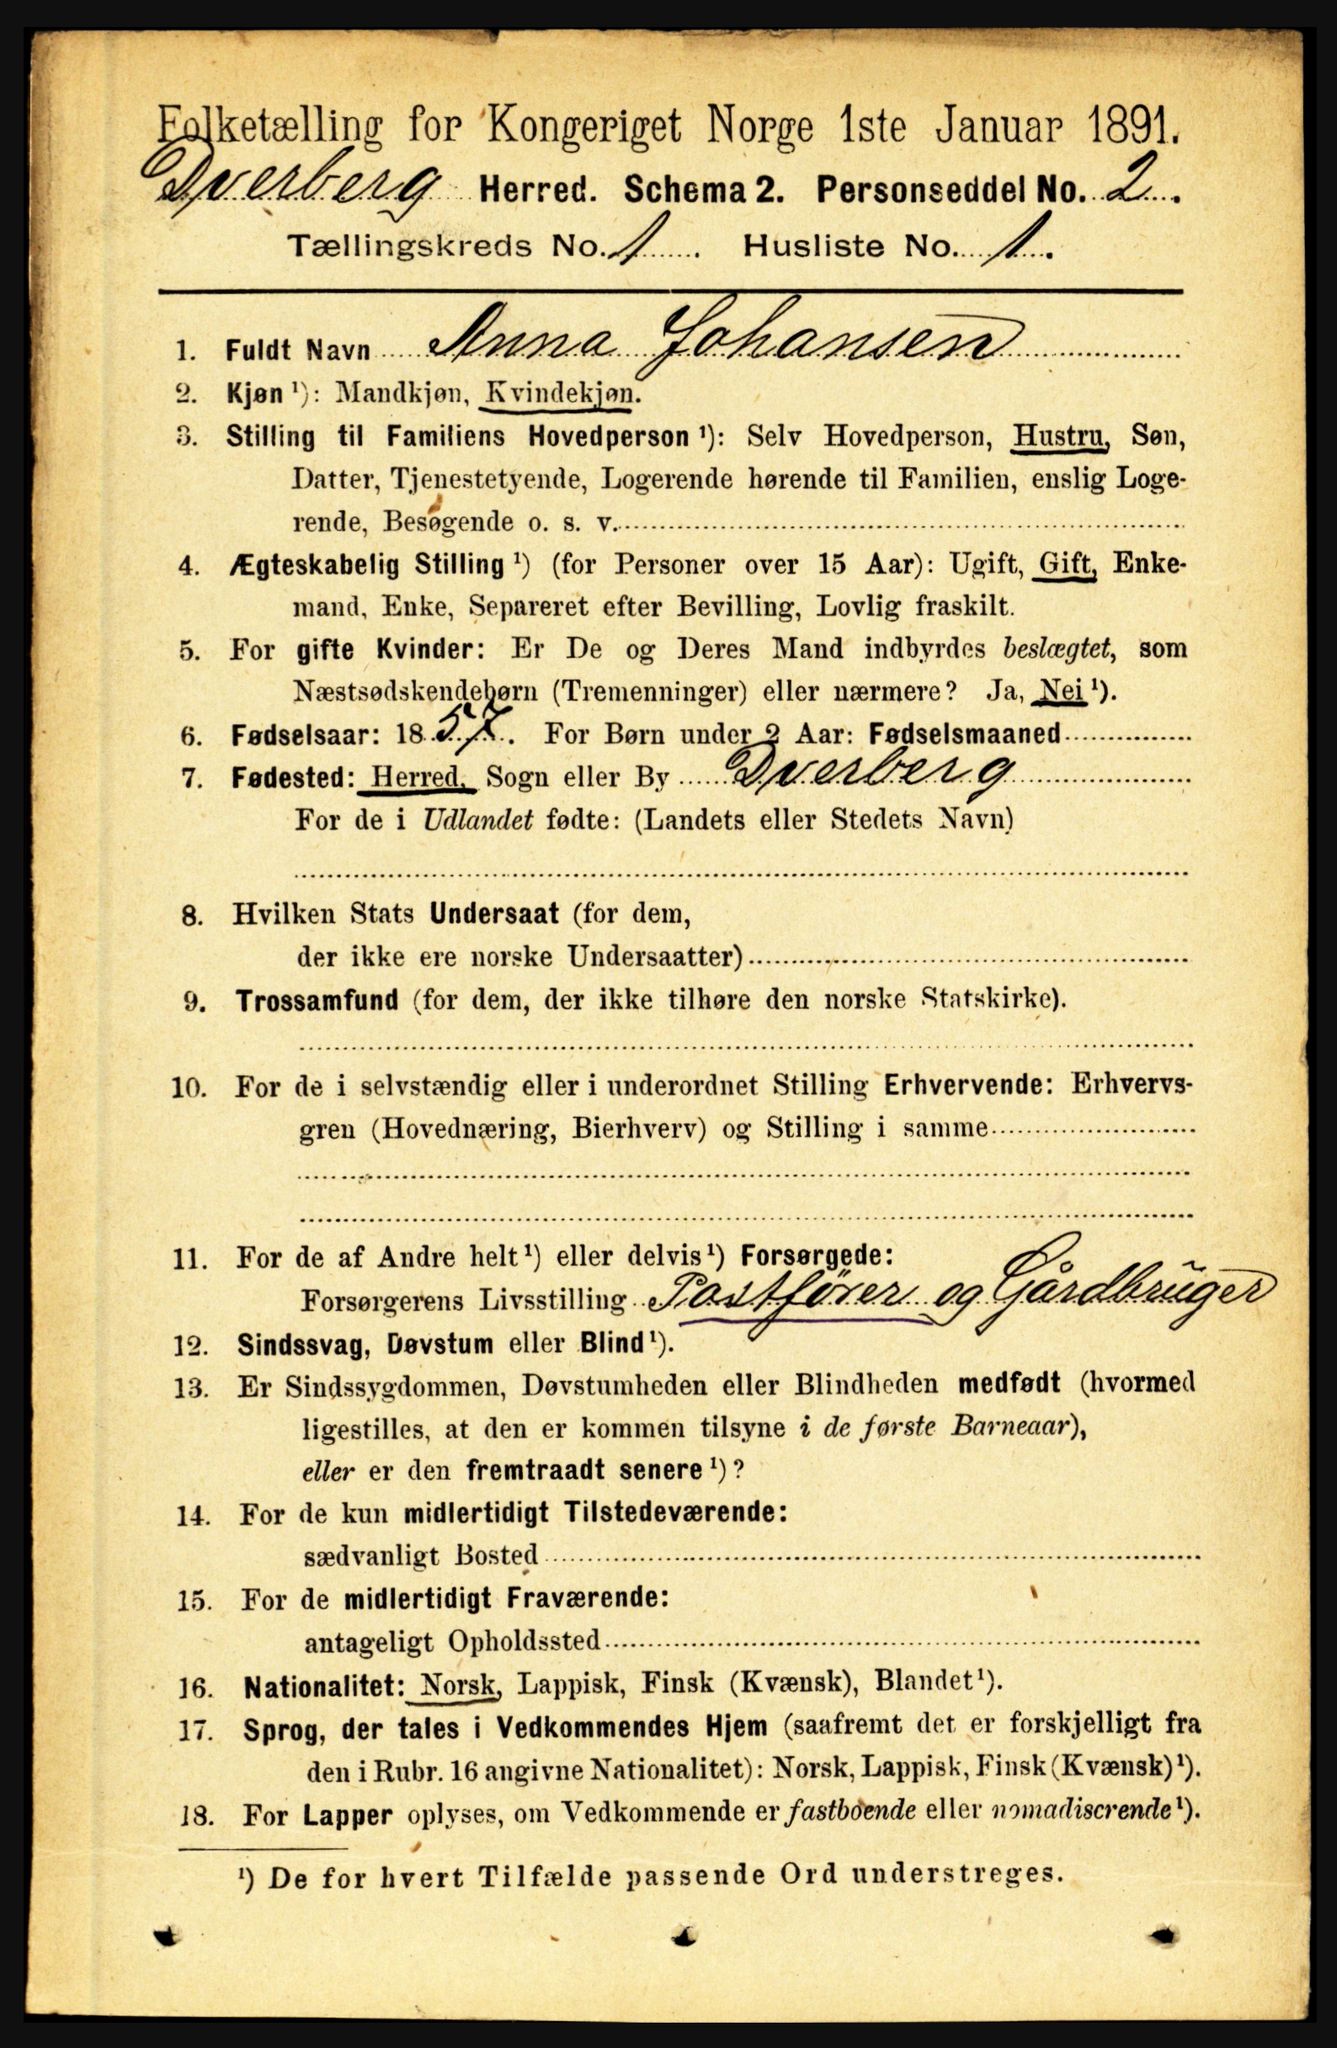 Folketælling for Kongeriget Norge 1ste Januar 1891.
Dverberg Herred. Schema 2. Personseddel No. 2.
Tællingskreds No. 1. Husliste No. 1.
1. Fuldt Navn Anna Johansen
2. Kjøn ¹): Mandkjøn, Kvindekjøn.
3. Stilling til Familiens Hovedperson ¹): Selv Hovedperson, Hustru, Søn,
Datter, Tjenestetyende, Logerende hørende til Familien, enslig Loge-
rende, Besøgende o. s. v.
4. Ægteskabelig Stilling ¹) (for Personer over 15 Aar): Ugift, Gift, Enke-
mand, Enke, Separeret efter Bevilling, Lovlig fraskilt.
5. For gifte Kvinder: Er De og Deres Mand indbyrdes beslægtet, som
Næstsødskendebørn (Tremenninger) eller nærmere? Ja, Nei ¹).
6. Fødselsaar: 1857. For Børn under 2 Aar: Fødselsmaaned
7. Fødested: Herred, Sogn eller By Dverberg
For de i Udlandet fødte: (Landets eller Stedets Navn)
8. Hvilken Stats Undersaat (for dem,
der ikke ere norske Undersaatter)
9. Trossamfund (for dem, der ikke tilhøre den norske Statskirke).
10. For de i selvstændig eller i underordnet Stilling Erhvervende: Erhvervs-
gren (Hovednæring, Bierhverv) og Stilling i samme
11. For de af Andre helt ¹) eller delvis ¹) Forsørgede:
Forsørgerens Livsstilling Postfører og Gårdbruger
12. Sindssvag, Døvstum eller Blind ¹).
13. Er Sindssygdommen, Døvstumheden eller Blindheden medfødt (hvormed
ligestilles, at den er kommen tilsyne i de første Barneaar),
eller er den fremtraadt senere ¹)?
14. For de kun midlertidigt Tilstedeværende:
sædvanligt Bosted
15. For de midlertidigt Fraværende:
antageligt Opholdssted
16. Nationalitet: Norsk, Lappisk, Finsk (Kvænsk), Blandet ¹).
17. Sprog, der tales i Vedkommendes Hjem (saafremt det er forskjelligt fra
den i Rubr. 16 angivne Nationalitet): Norsk, Lappisk, Finsk (Kvænsk) ¹).
18. For Lapper oplyses, om Vedkommende er fastboende eller nomadiserende ¹).
¹) De for hvert Tilfælde passende Ord understreges.